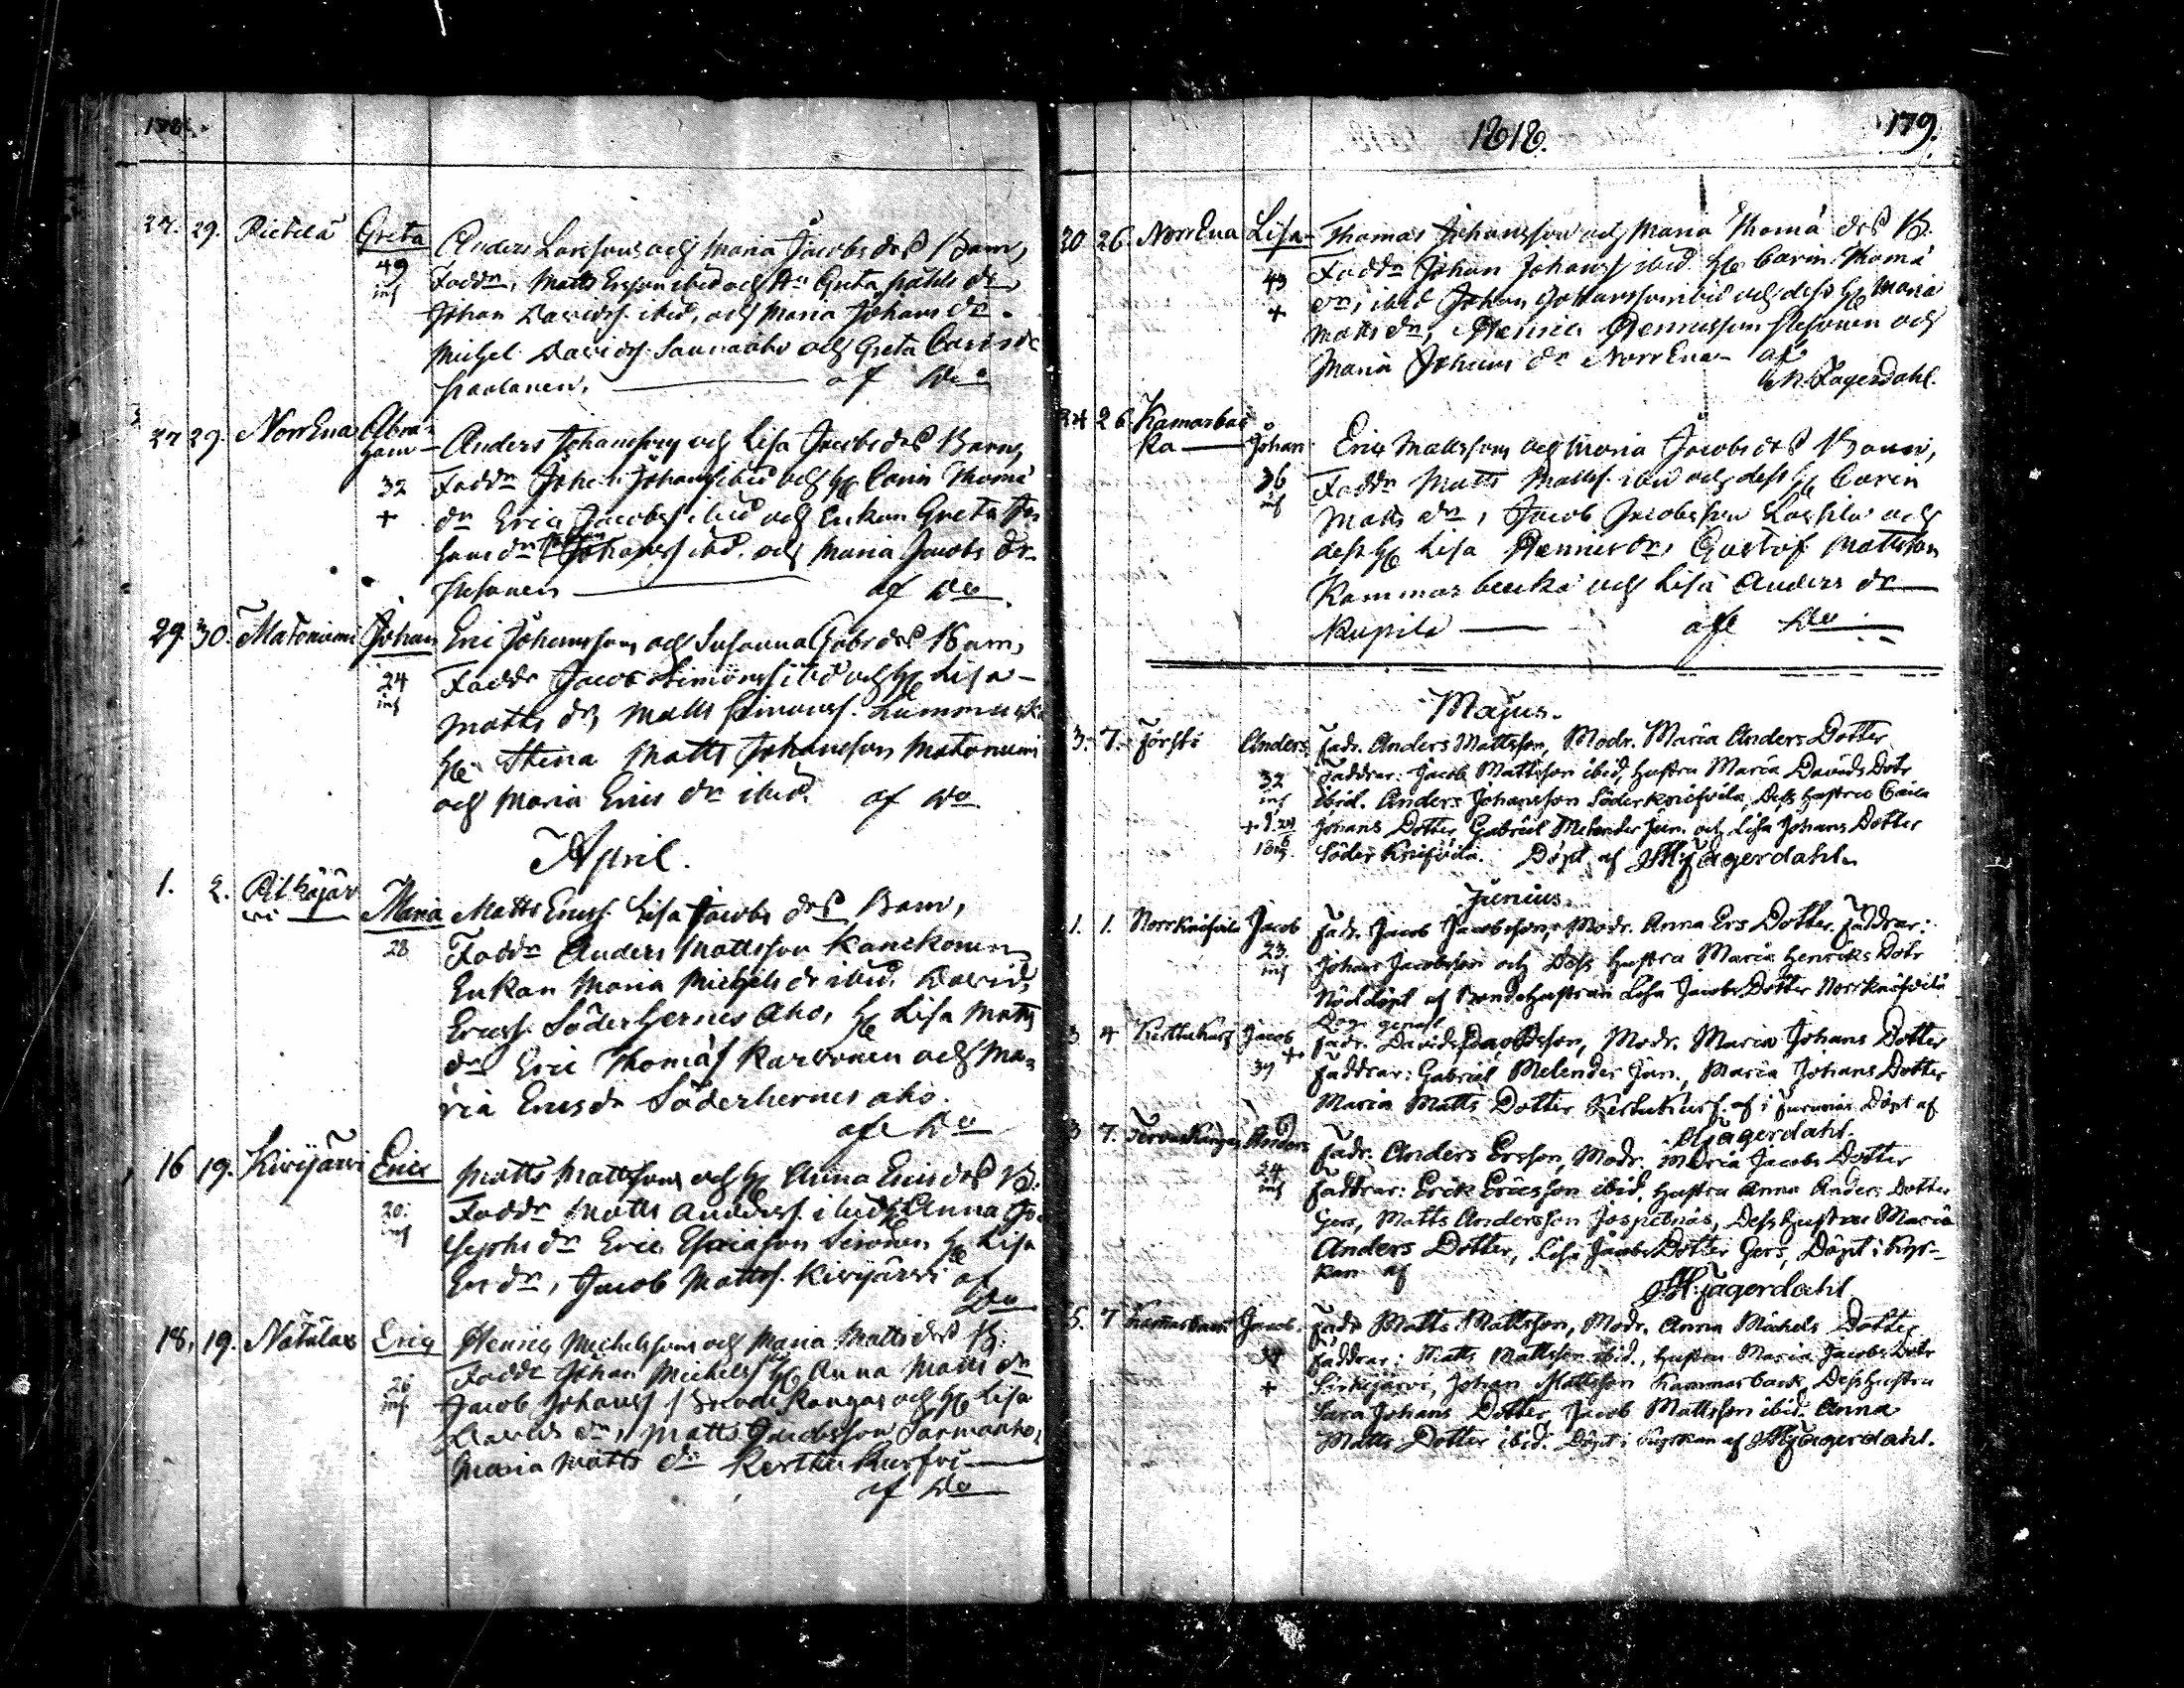 178.
27. 29. Pietilä Greta Anders Larssons och Maria Jacobs drs Barn,
49 Faddr, Matts Ersson ibid och Hu Greta Påhls dr
inf Johan Davidss. ibid, och Maria Johans dr
Michel Davidss. Saunaaho och Greta Carls dr
Paalanen. af Do
27 29. NorrEna Abra-
ham Anders Johansson och Lisa Jacobs drs Barn,
32 Faddr Johan Johanss ibid och H. Carin Thomæ
+ dr Eric Jacobss ibid och Enkan Greta Jo
hans dr Johan Johanss ibid. och Maria Jacobs dr
af Do
29. 30. Matoniemi Johan Eric Johanssons och Susanna Gabr drs Barn,
24 Faddr Jacob Simonss ibid och H. Lisa
inf Matts dr, Matts Simonss. Lummukka
H. Stina Matts Johansson Matoniemi
och Maria Erics dr ibid. af Do
April.
1. 2. Pitkäjär
vi Maria Matts Ericss. Lisa Jacobs drs Barn,
28 Faddr Anders Mattsson Kanckonen
Enkan Maria Michels dr ibid. David
Ericss. Söderhernes Aho, H. Lisa Matts
dr Eric Thomæs Karvonen och Ma-
ria Erics dr Söderhernes aho.
af Do
16 19. Kivijärvi Eric Matts Mattssons och H. Anna Erics drs B.
20. Faddr Matts Anderss. ibid H. Anna Jo
inf sephs dr Eric Esaiason Sironen H. Lisa
Ers dr, Jacob Mattss. Kivijärvi af
Do
18. 19. Nätulax Eric Henric Michelssons och Maria Matts drs B.
26 Faddr Johan Michelss H. Anna Matts dr
inf Jacob Johanss kangas och H. Lisa
Davids dr, Matts Jacobsson
Maria Matts dr Kerttu Kurfvi
af Do
1818. 179.
20 26 NorrEna Lisa Thomas Johansson och Maria Thomæ drs B.
43 Faddr Johan Johanss ibid. H. Carin Thomæ
+ dr, ibid Johan Johansson ibid och dess H. Maria
Matts dr, Henric Henricsson och
Maria Johans dr NorrEna af
M. Fagerdahl.
24 26 Kamarbac
ka Johan Eric Mattssons och Maria Jacobs drs Barn,
36 Faddr Matts Mattss. ibid och dess H. Carin
inf Matts dr, Jacob Jacobsson Lassila och
dess H. Lisa Henrics dr, Gustaf Mattsson
Kammarbacka och Lisa Anders dr
Kupila af Do
Majus.
3. 7. Förstö Anders Fadr. Anders Mattsson, Modr. Maria Anders Dotter
32 Faddrar: Jacob Mattsson ibid, Hustru Maria Davids Dotr
inf ibid. Anders Johansson Söderknifvila, Dess Hustru
Johans Dotter, Gabriel Melender Jun. och Lisa Johans Dotter
Söder Knifvila. Döpt af M. Fagerdahl.
Junius.
1. 1. Norrknifvila Jacob Fadr. Jacob Jacobsson, Modr. Anna Ers Dotter. Faddrar:
23 Johan Jacobsson och Dess Hustru Maria Henriks Dotr
inf Nöddöpt af Bondehustrun Lisa Jacobs Dotter Norrknifvila
3 4 Kerttukurf Jacob Fadr. David Davidsson, Modr. Maria Johans Dotter
39 + Faddrar: Gabriel Melender Jun., Maria Johans Dotter
Maria Matts Dotter Kerttukurf. Döpt af
M. Fagerdahl.
3 7. Tervakangas Anders Fadr. Anders Ersson, Modr. Maria Jacobs Dotter
24 Faddrar: Erik Ericsson ibid. Hustru Anna Anders Dotter
inf Gers, Matts Andersson Jospetnäs, Dess Hustru Maria
Anders Dotter, Lisa Jacobs Dotter Gers, Döpt i Kyr-
kan af M. Fagerdahl
5. 7 Kammarback Jacob. Fadr. Matts Mattsson, Modr. Anna Michels Dotter
34 Faddrar: Matts Mattsson ibid., Hustru Maria Jacobs Dotr
+ Sirkijärvi, Johan Mattsson Kammarback, Dess Hustru
Sara Johans Dotter, Jacob Mattsson ibid. Anna
Matts Dotter ibid. Döpt i Kyrkan af M. Fagerdahl.